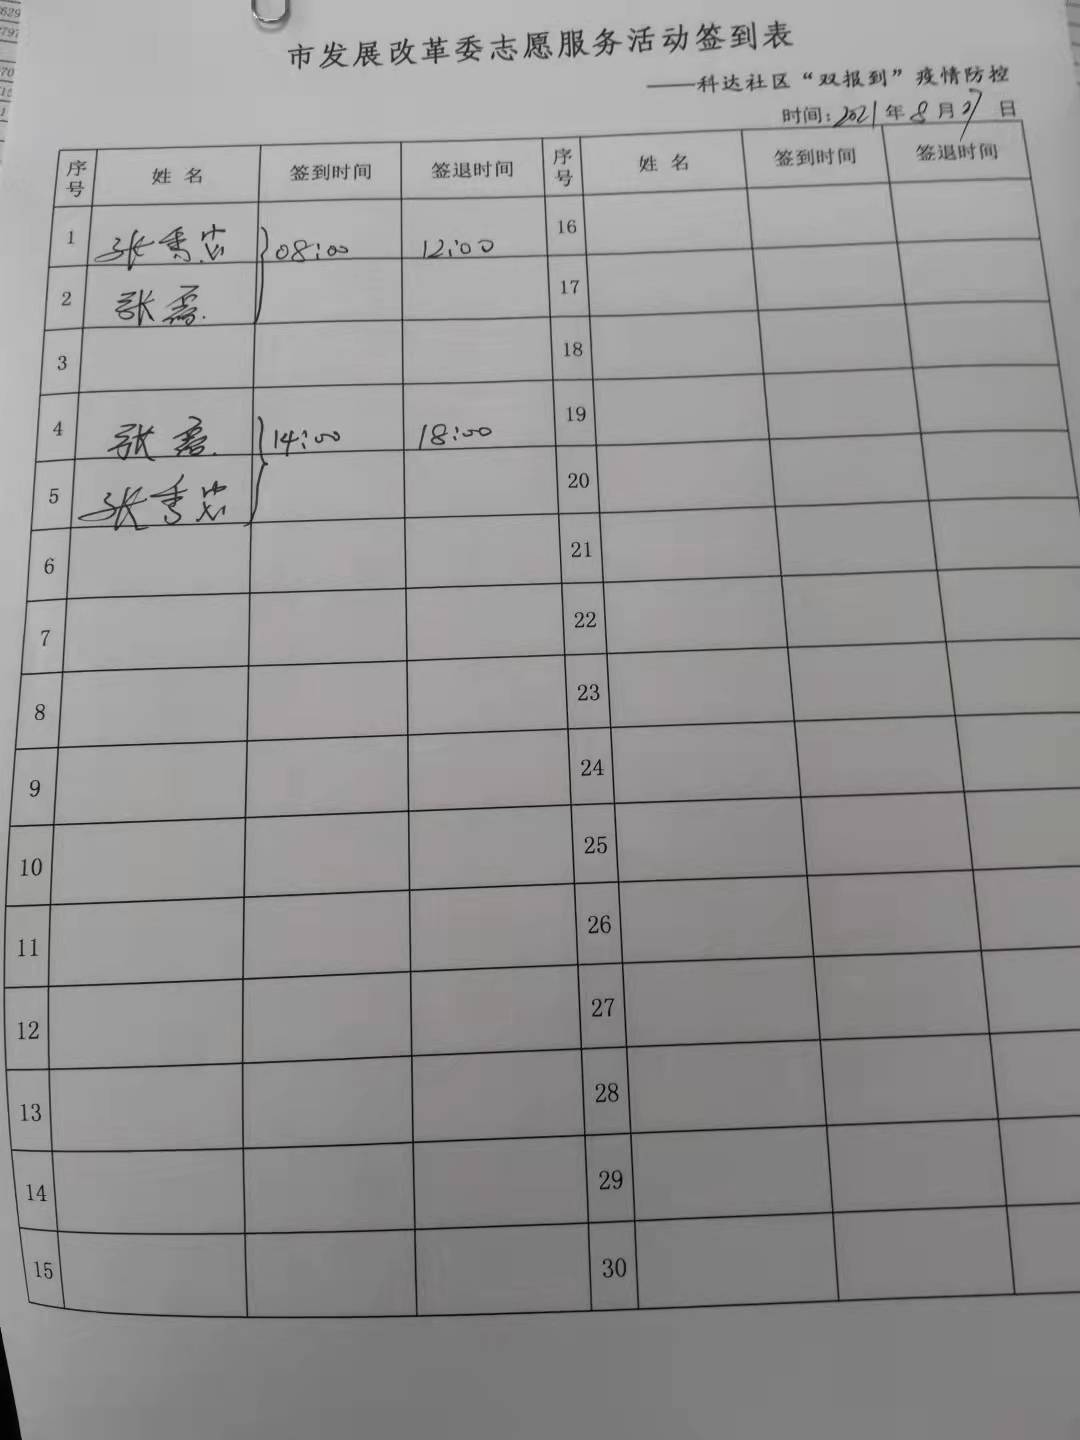 市发展改革委志愿服务活动签到表
——科达社区“双报到”疫情防控
时间：2021年8月27日
序号 姓名 签到时间 签退时间 序号 姓名 签到时间 签退时间
1 张秀忠 08:00 12:00 16
2 张磊 17
3 18
4 张磊 14:00 18:00 19
5 张秀忠 20
6 21
7 22
8 23
9 24
10 25
11 26
12 27
13 28
14 29
15 30